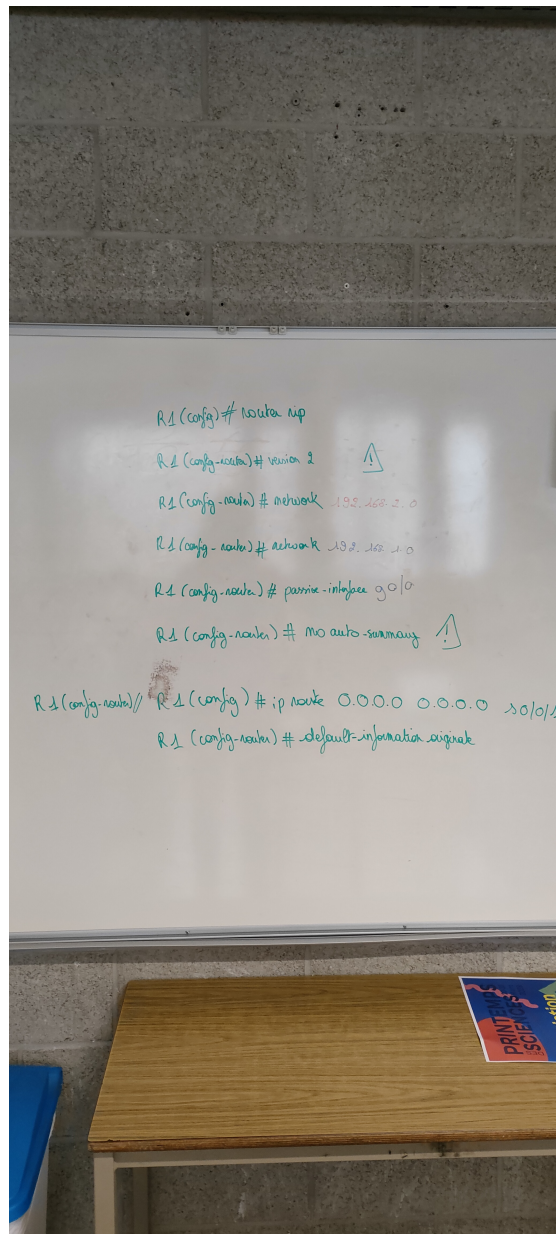 R1 (config) # router rip
R1 (config-router) # version 2
R1 (config-router) # network 192.168.2.0
R1 (config-router) # network 192.168.1.0
R1 (config-router) # passive-interface g0/0
R1 (config-router) # no auto-summary
R1 (config-router) // R1 (config) # ip route 0.0.0.0 0.0.0.0 s0/0/1
R1 (config-router) # default-information originate
PRINTEMPS
SCIENCES